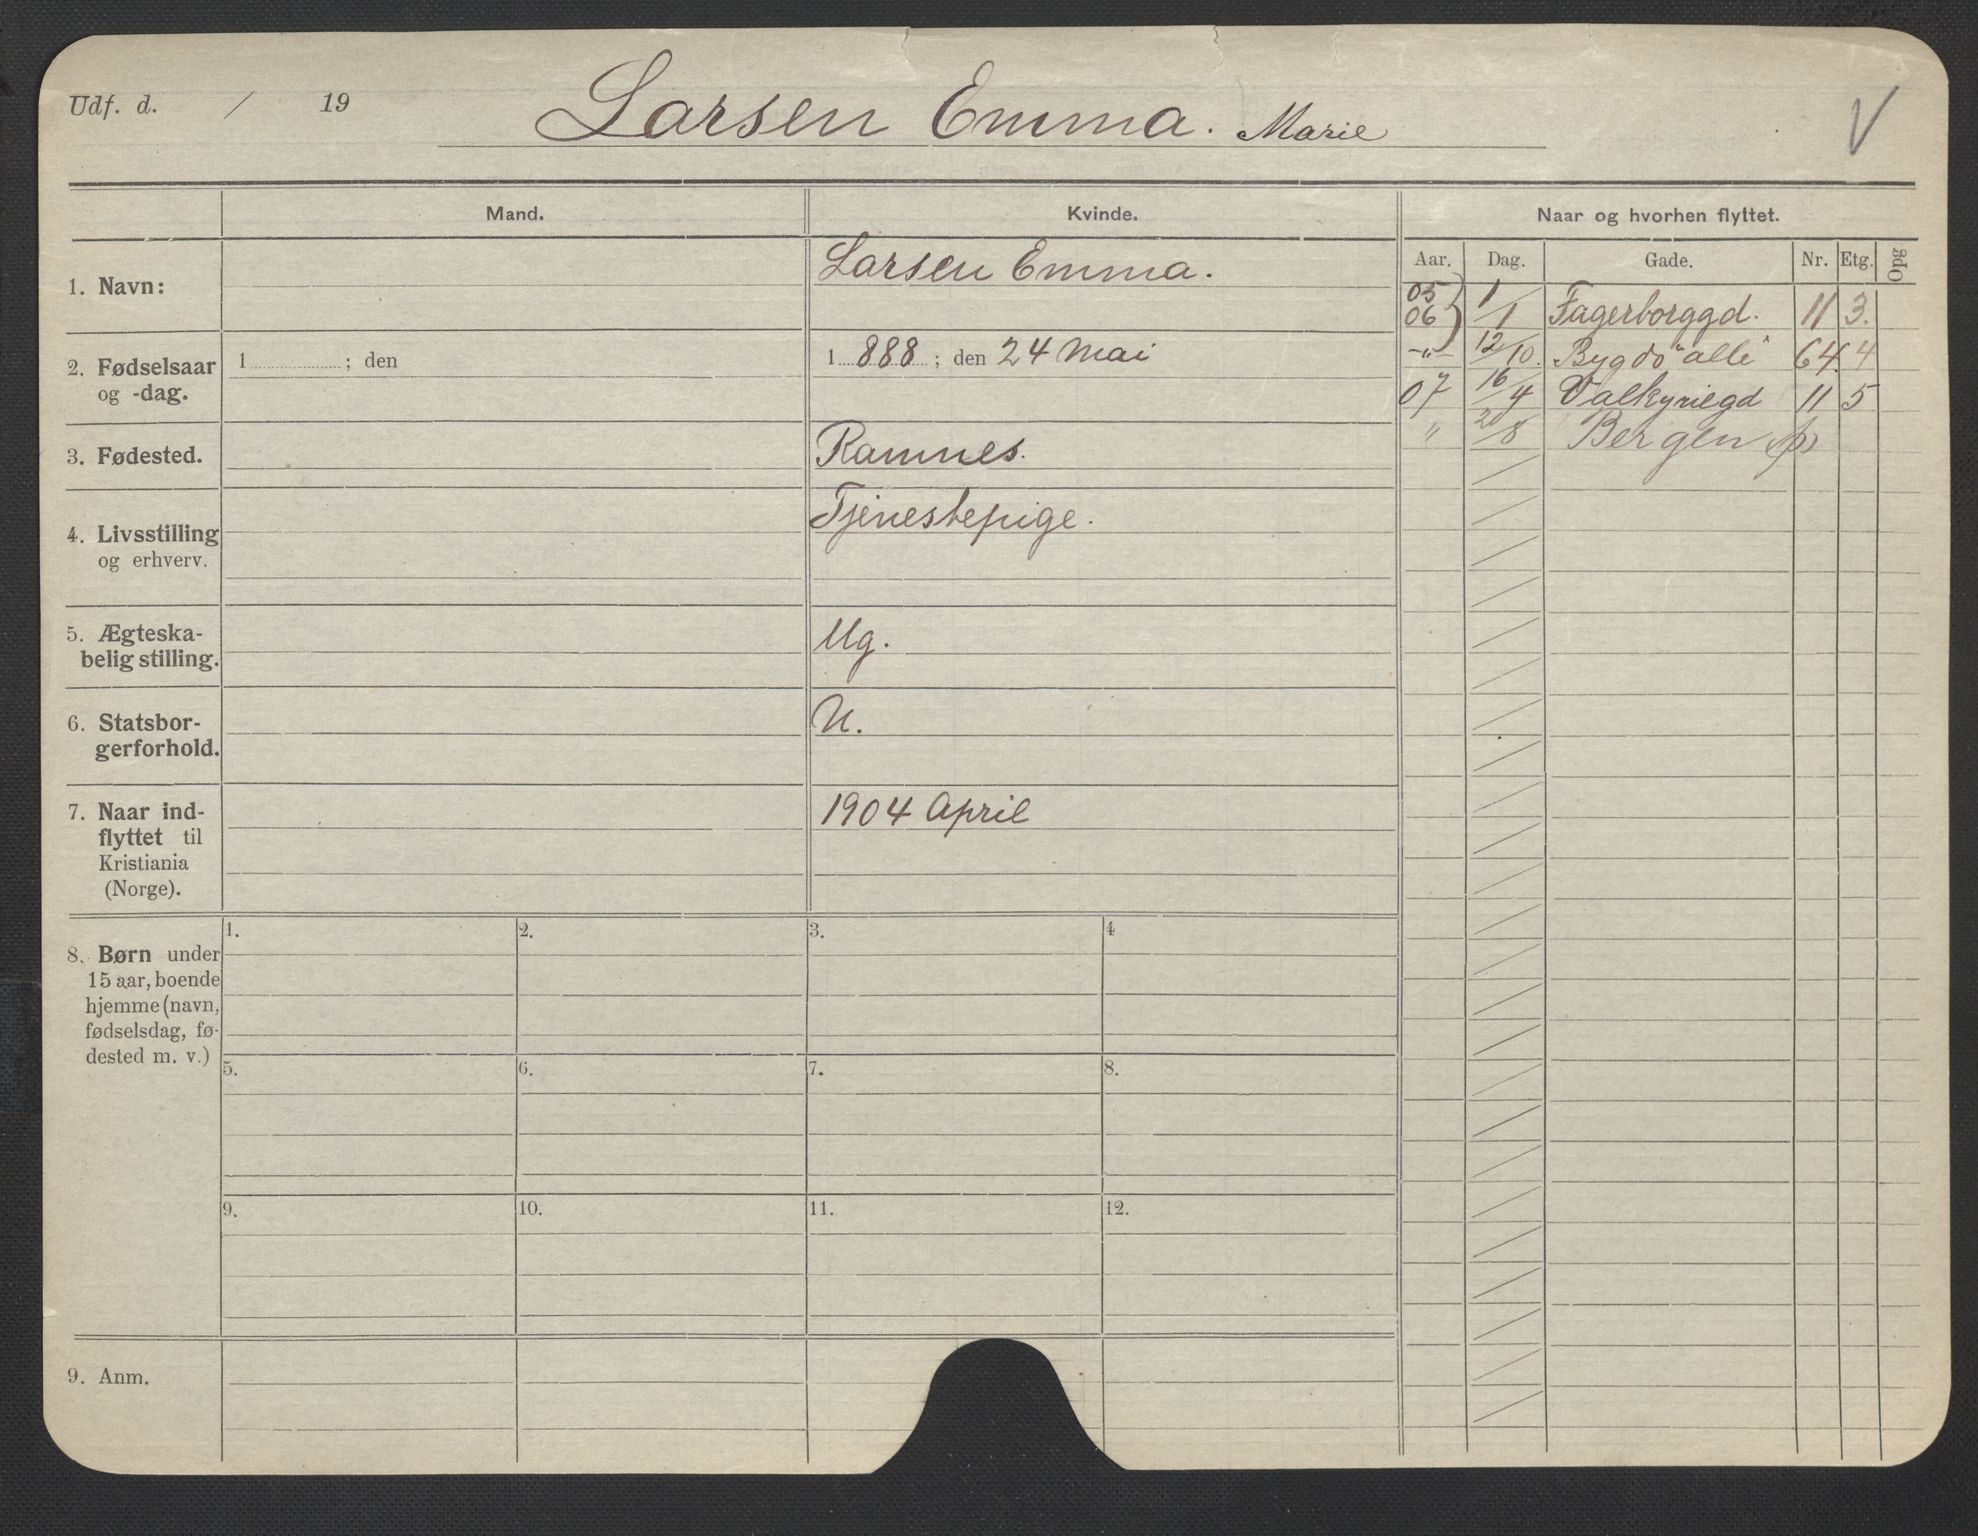 Udf. d. / 19
Larsen Emma. Marie
V
Mand.
Kvinde.
Naar og hvorhen flyttet.
Aar. Dag. Gade. Nr. Etg. Opg
1. Navn:
Larsen Emma.
2. Fødselsaar
og -dag.
1 ; den
1 888 ; den 24 Mai
3. Fødested.
Ramnes.
4. Livsstilling
og erhverv.
Tjenestepige.
5. Ægteska-
belig stilling.
Ug.
6. Statsbor-
gerforhold.
N.
7. Naar ind-
flyttet til
Kristiania
(Norge).
1904 April
05
06 } 1/1 Fagerborggd. 11 3.
-"- 12/10. Bygdö alle 64. 4
07 16/4 Valkyriegd 11 5
" 20/8 Bergen
8. Børn under
15 aar, boende
hjemme (navn,
fødselsdag, fø-
dested m. v.)
1. 2. 3. 4
5. 6. 7. 8.
9. 10. 11. 12.
9. Anm.